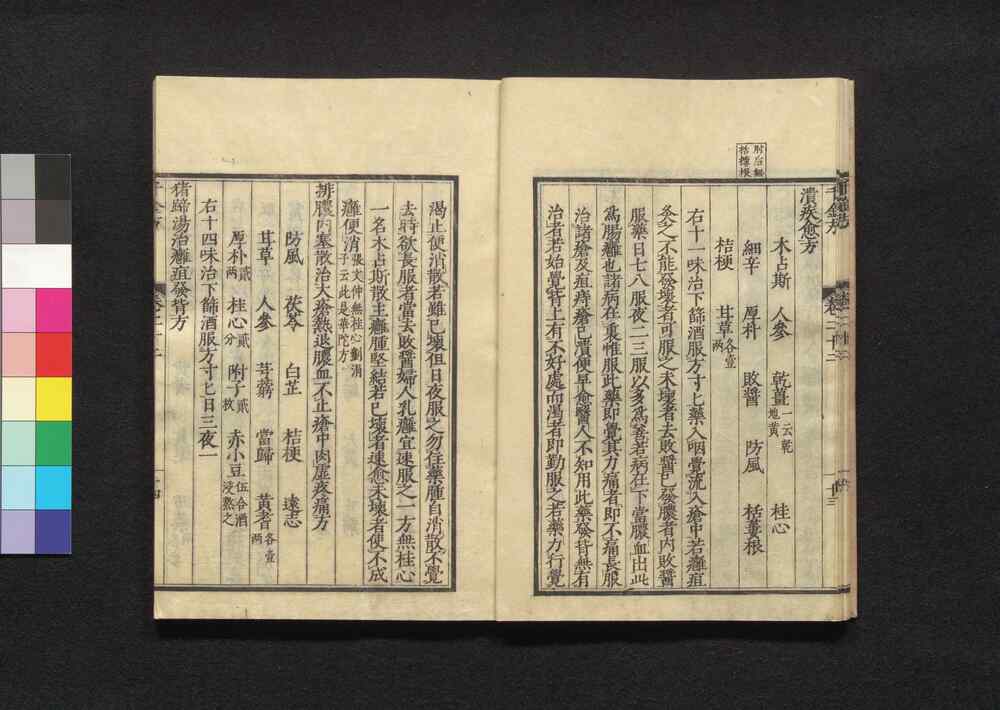 潰疾愈方
木占斯 人參 乾薑一云乾地黄 桂心
細辛 厚朴 敗醬 防風 栝蔞根
桔梗 甘草各壹兩
右十一味治下篩酒服方寸匕藥入咽覺流入瘡中若癰疽
灸之不能發壞者可服之未壞者去敗醬已發膿者内敗醬
服藥日七八服夜二三服以多爲善若病在下當膿血出此
爲腸癰也諸病在裏惟服此藥即覺其力痛者即不痛長服
治諸瘡及疽痔瘡已潰便早愈醫人不知用此藥發背無有
治者若始覺背上有不好處而渴者即勤服之若藥力行覺
渴止便消散若雖已壞但日夜服之勿住藥腫自消散不覺
去時欲長服者當去敗醬婦人乳癰宜速服之一方無桂心
一名木占斯散主癰腫堅結若已壞者速愈未壞者使不成
癰便消張文仲無桂心劉涓子云此是華陀方
排膿内塞散治大瘡熱退膿血不止瘡中肉虚疼痛方
防風 茯苓 白芷 桔梗 遠志
甘草 人參 芎藭 當歸 黄耆各壹兩
厚朴貳兩 桂心貳分 附子貳枚 赤小豆伍合酒浸熬之
右十四味治下篩酒服方寸匕日三夜一
猪蹄湯治癰疽發背方